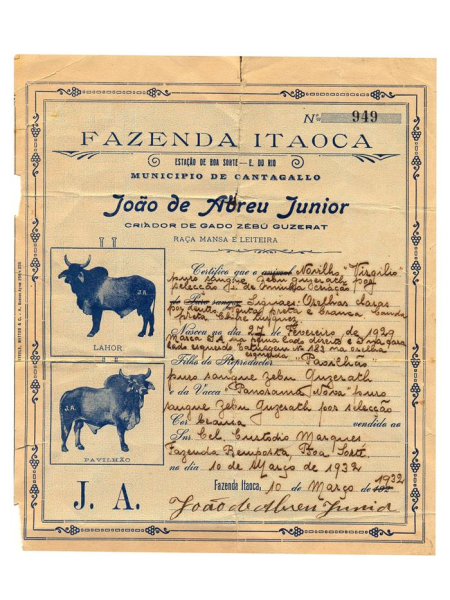 Nº 949
FAZENDA ITAOCA
ESTAÇÃO DE BOA SORTE — E. DO RIO
MUNICIPIO DE CANTAGALLO
João de Abreu Junior
CRIADOR DE GADO ZEBÚ GUZERAT
RAÇA MANSA E LEITEIRA
Certifico que o animal Novilho "Virgilio"
puro sangue Zebu Guzerath por
selecção J. A. de minha criação
de Puro sangue Signaes: Orelhas
por dentro
preta
Nasceu no dia 27 de Fevereiro de 1929
Marca J A na
lado esquerdo 183 na orelha
esquerda
Filho do Reproductor "Pavilhão"
puro sangue Zebu Guzerath
e da Vacca "Panorama" Nova puro
sangue Zebu Guzerath por selecção
Côr branca vendido ao
Snr. Cel. Eustodio Marques
Fazenda Bemposta, Boa Sorte.
no dia 10 de Março de 1932
LAHOR
PAVILHÃO
J. A.
Fazenda Itaoca, 10 de Março de 1932
João de Abreu Junior